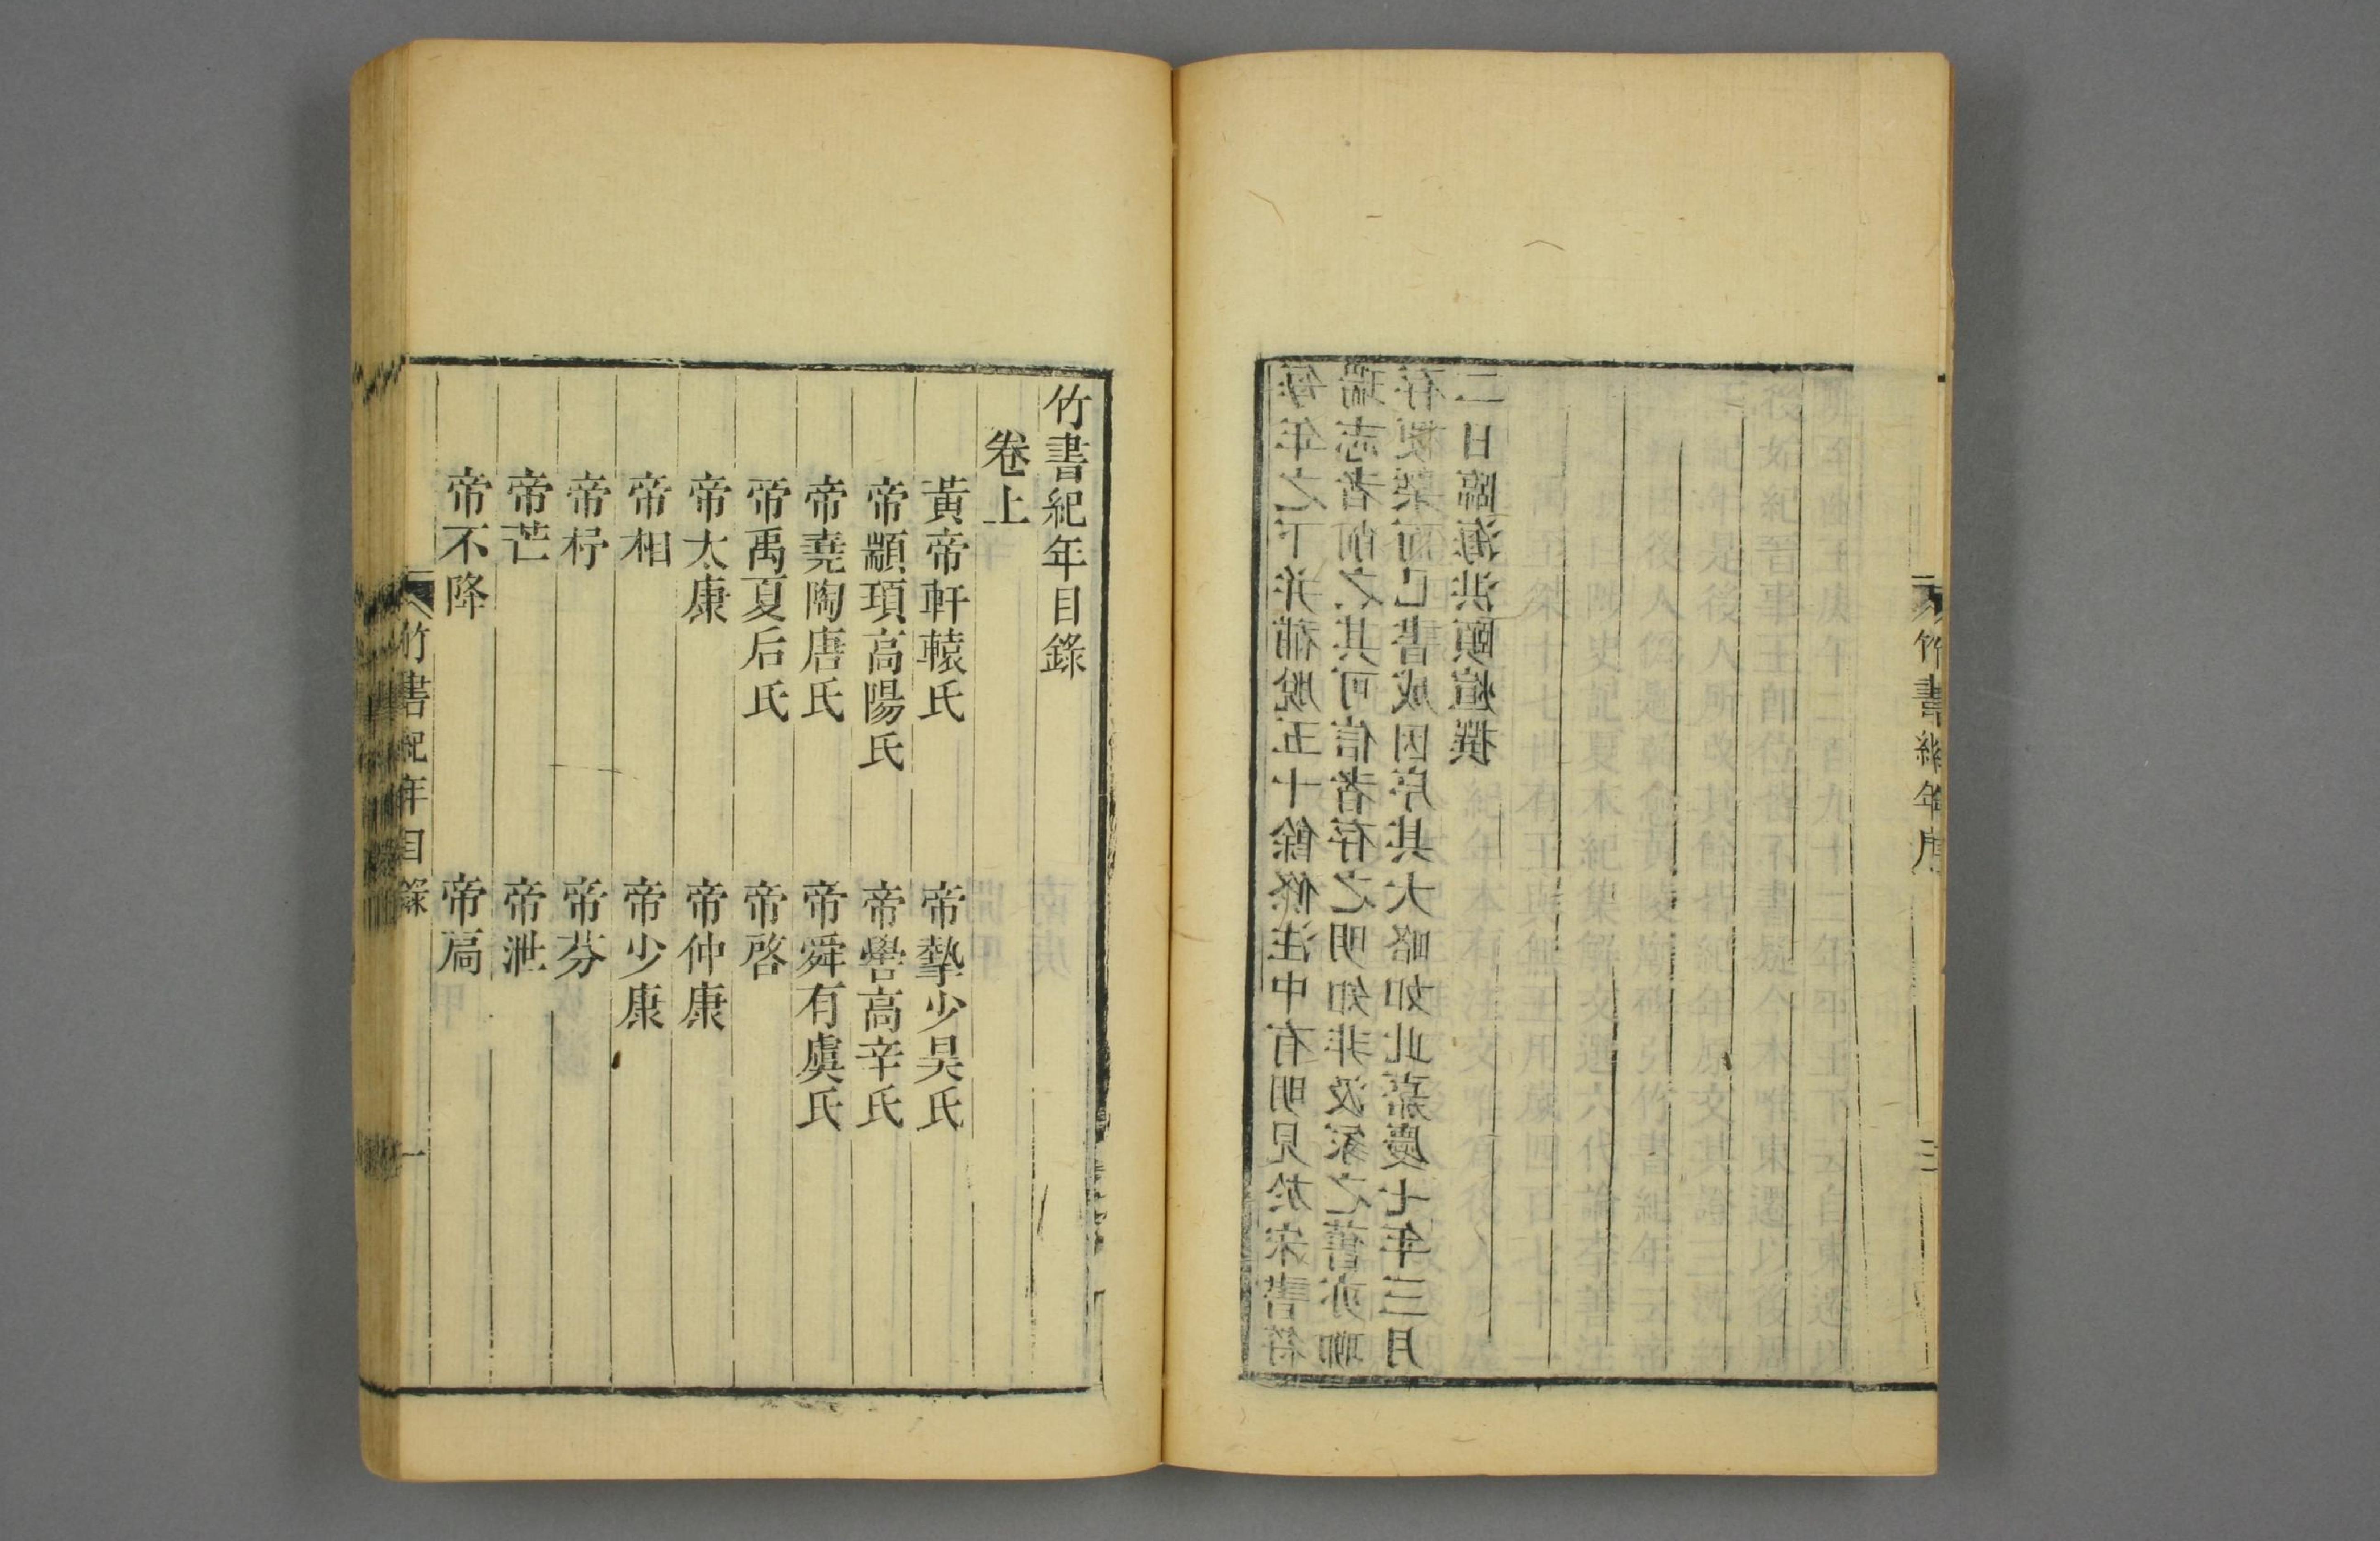 竹書紀年序
三
每年之下并補脫五十餘條注中有明見於宋書符
瑞志者削之其可信者存之明知非汲冢之舊亦聊
存梗槩而已書成因序其大略如此嘉慶七年三月
二日臨海洪頤煊撰
竹書紀年目錄
卷上
黃帝軒轅氏 帝摯少昊氏
帝顓頊高陽氏 帝嚳高辛氏
帝堯陶唐氏 帝舜有虞氏
帝禹夏后氏 帝啓
帝太康 帝仲康
帝相 帝少康
帝杼 帝芬
帝芒 帝泄
帝不降 帝扃
竹書紀年目錄
一